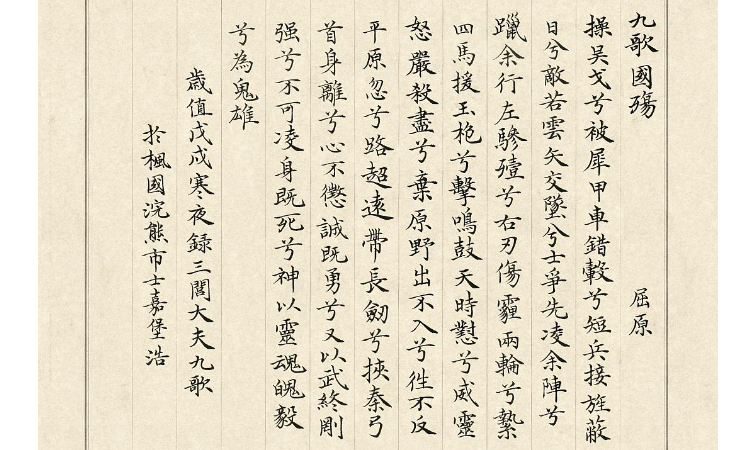 九歌國殤 屈原
操吴戈兮被犀甲車錯轂兮短兵接旌蔽
日兮敵若雲矢交墜兮士爭先凌余陣兮
躐余行左驂殪兮右刃傷霾兩輪兮縶
四馬援玉枹兮擊鳴鼓天時懟兮威靈
怒嚴殺盡兮棄原野出不入兮徃不反
平原忽兮路超逺帶長劒兮挾秦弓
首身離兮心不懲誠既勇兮又以武終剛
强兮不可凌身既死兮神以靈魂魄毅
兮為鬼雄
歳值戊戌寒夜録三閭大夫九歌
扵楓國浣熊市士嘉堡浩